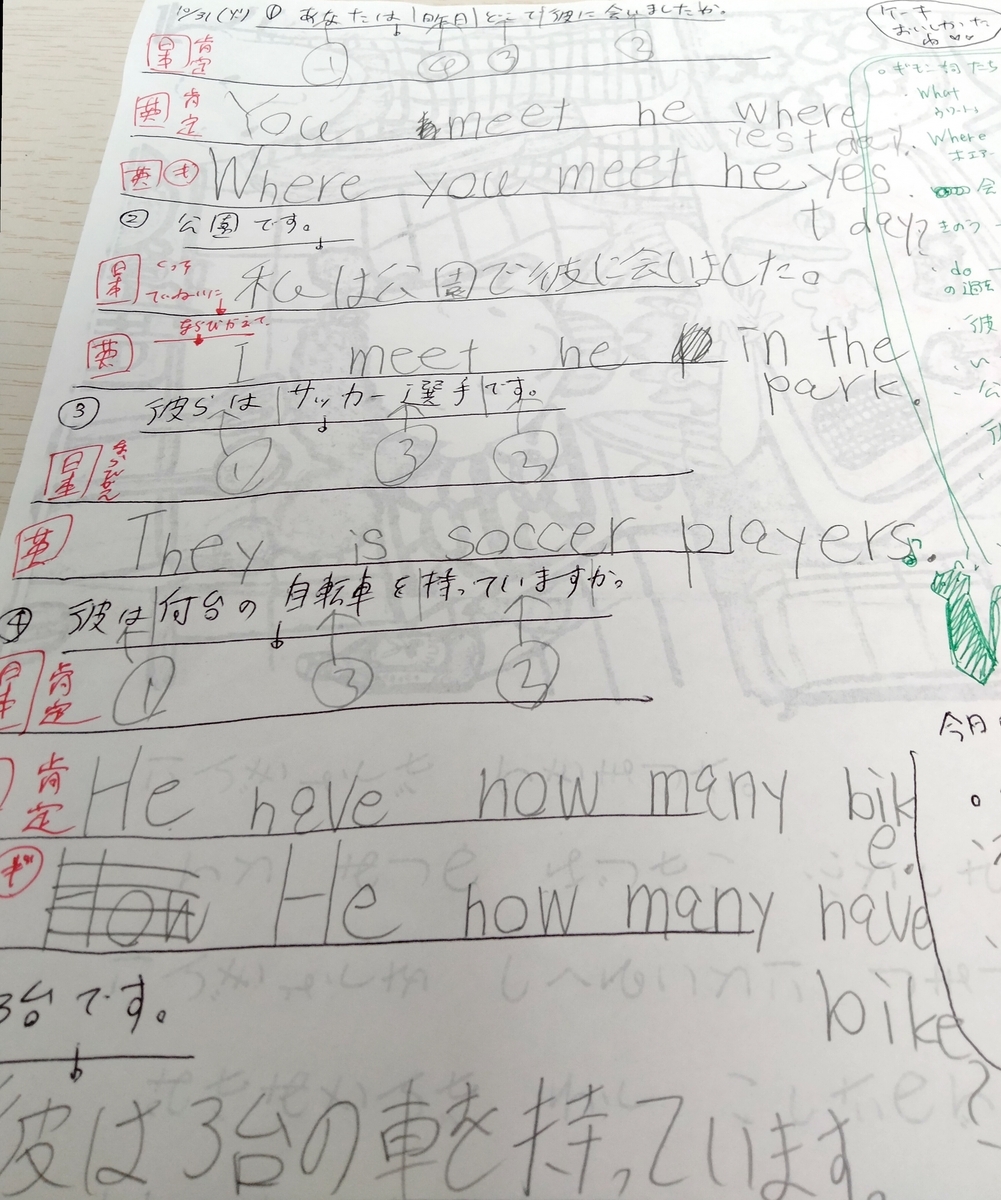 10/31(火) ① あなたは|昨日|どこで|彼に会いましたか。
ケーキ
おいしかった
ね♡♡
星 肯定 ① ④ ③ ②
英 肯定 You meet he where
yest day.
英 ギ Where you meet he yes
t day?
② 公園です。
星 くっつけ ていねいに 私は公園で彼に会いました。
ならびかえて
英 I meet he in the
park.
③ 彼らは|サッカー選手|です。
星 ① ③ ②
英 They is soccer players.
④ 彼は|何台の 自転車を|持っていますか。
星 肯定 ① ③ ②
肯定 He have how many bik
e.
ギ How He how many have
bike
?
3台です。
彼は3台の車を持っています
。ギモン詞たち
・What
Where
・会
きのう
・do
の過去
・彼
・い
・公
今月